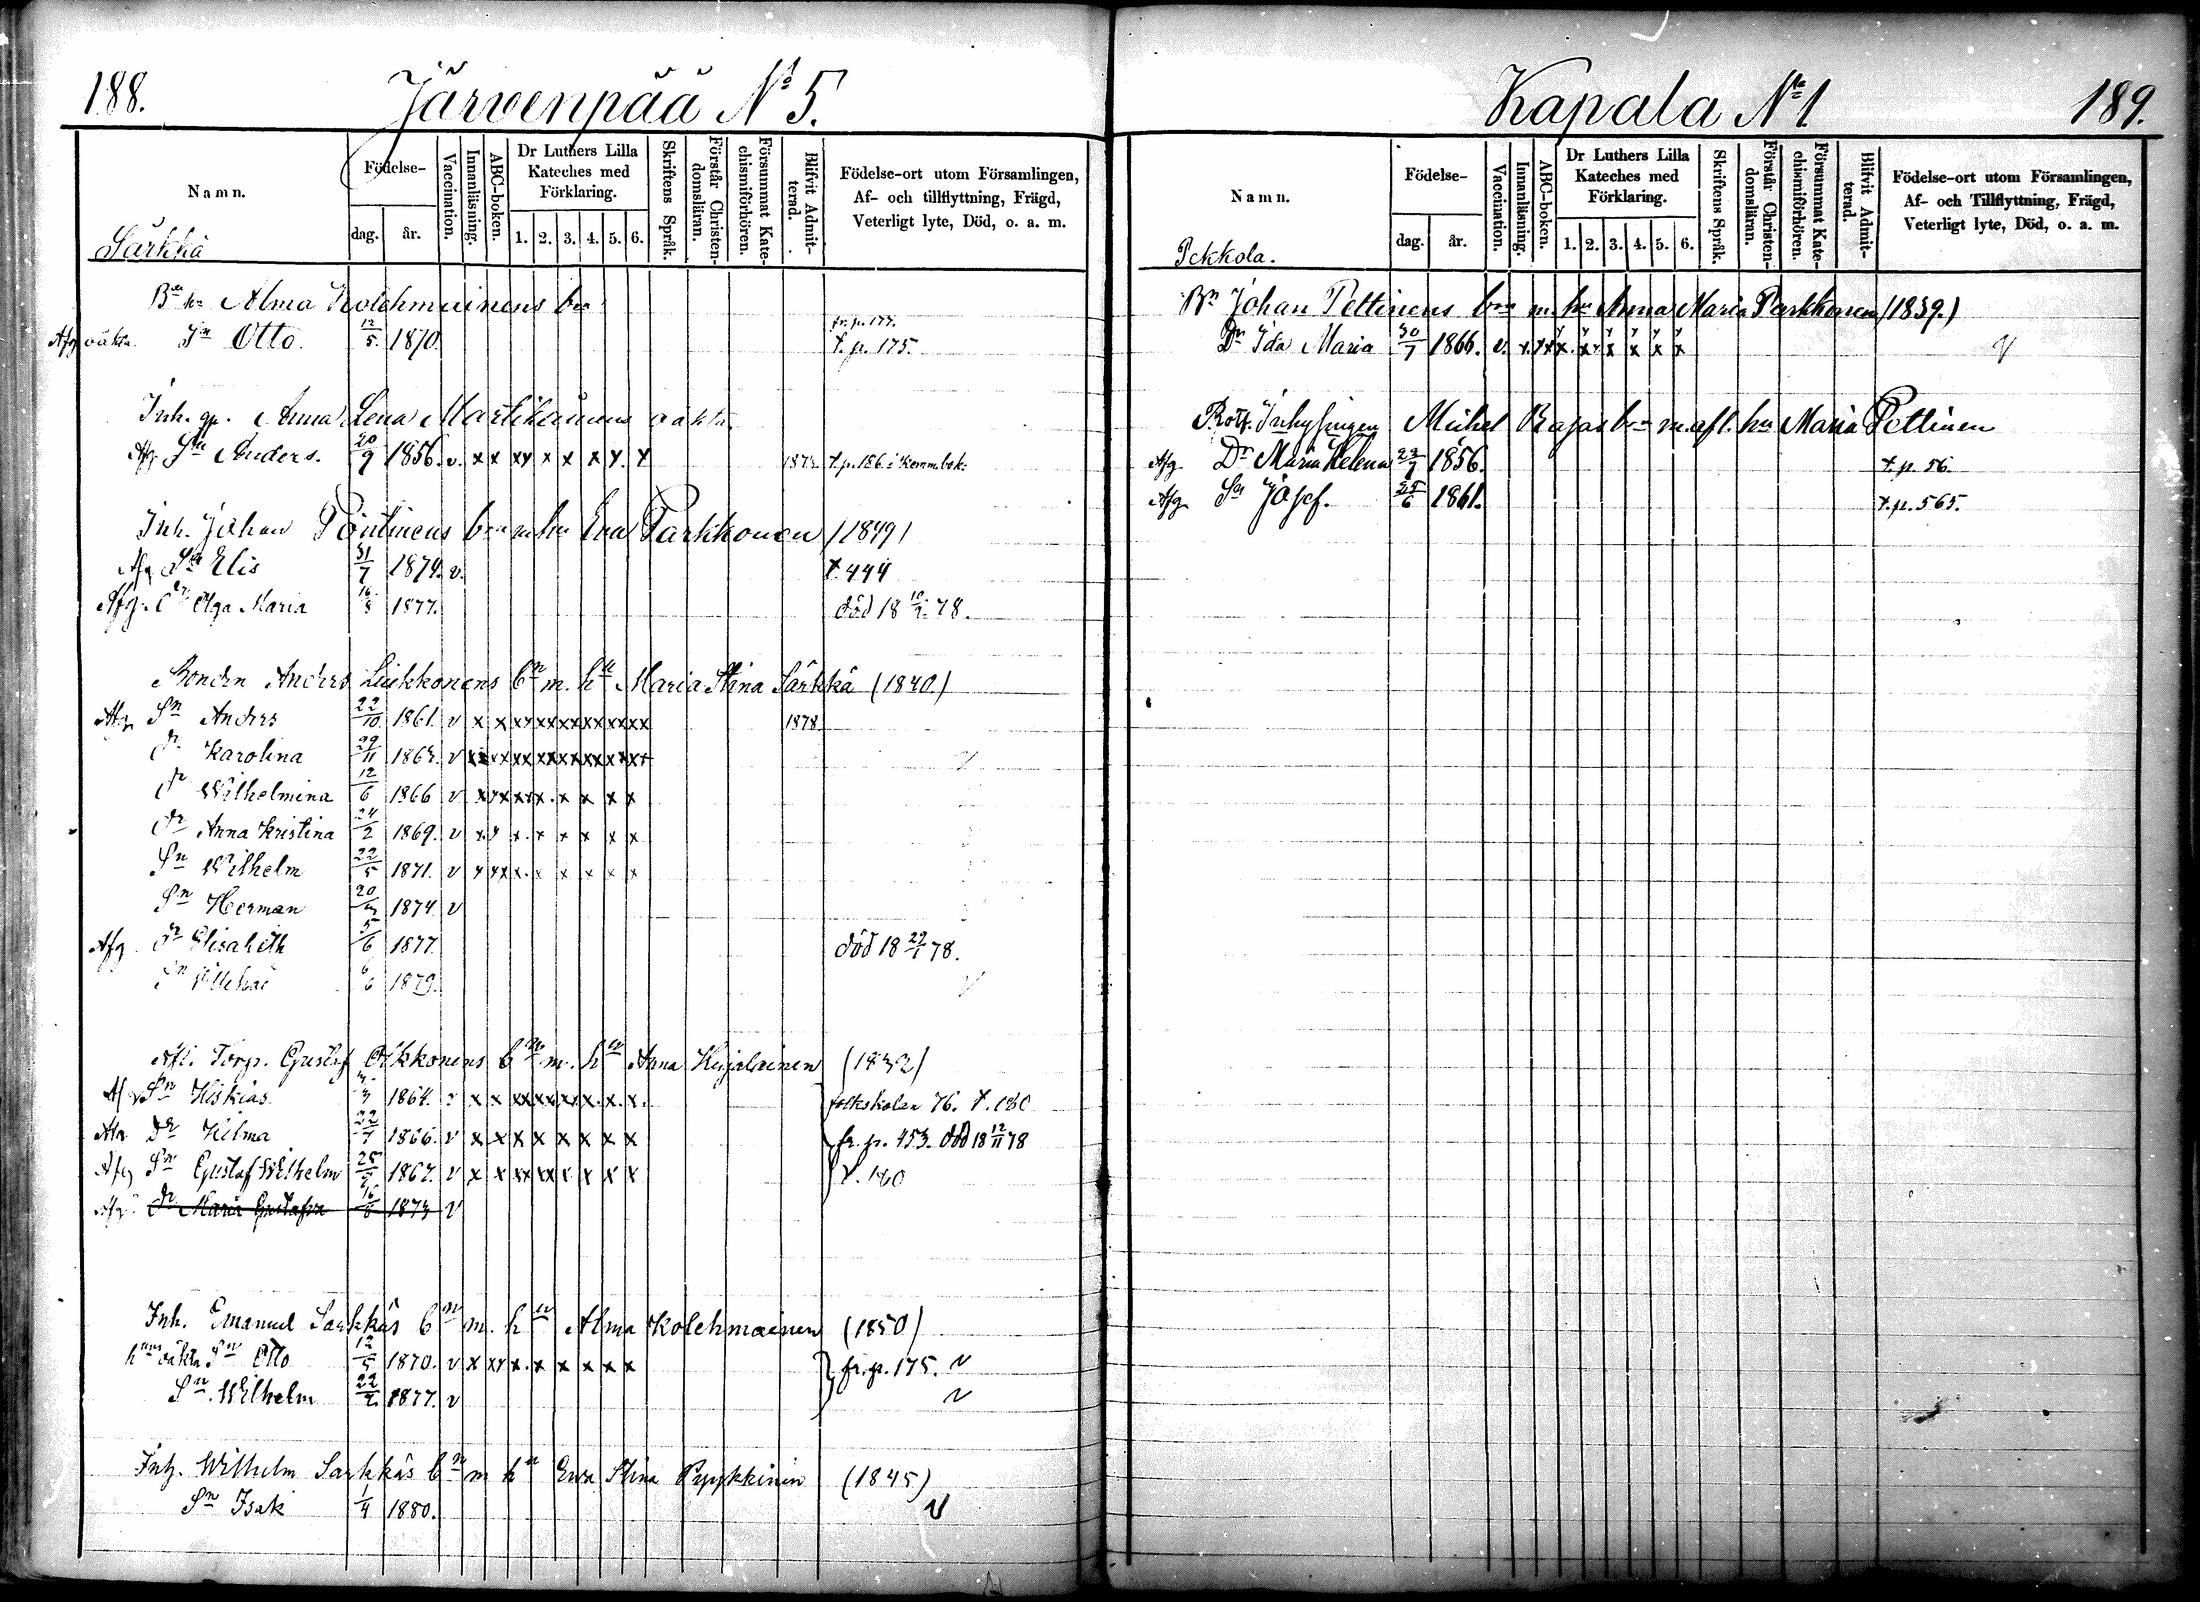 188.
Järvenpää No 5.
Namn.
Födelse-
dag.
år.
Vaccination.
Innanläsning.
ABC-boken.
Dr Luthers Lilla Kateches med Förklaring.
1. 2. 3. 4. 5. 6.
Skriftens Språk.
Förstår Christendomsläran.
Försummat Katechismiförhören.
Blifvit Admitterad.
Födelse-ort utom Församlingen, Af- och tillflyttning, Frägd, Veterligt lyte, Död, o. a. m.
Särkkä
Alma Kolehmainens bn
fr. p. 177.
Afg oäkta. Sn Otto. 12/5. 1870. t. p. 175.
Inh. gp. Anna Lena Martikainens oäkta.
Afg Sn Anders. 20/9 1856. v. x x xy x x x y. y 187 t. p. 186 i komm.bok.
Inh. Johan Pöntinens bn m hu Eva Parkkonen (1849)
Afg Sn Elis 31/7 1874. v. t. 444
Afg. Dr Olga Maria 16/8 1877. död 18 10/2 78.
Bonden Anders Liukkonens bn m. hu Maria Stina Särkkä (1840)
Afg Sn Anders 22/10 1861. v x x xx xx xx xx xx xx 1878.
Dr Karolina 29/11 1863. v xx xx xx xx xx xx xx xx
Dr Wilhelmina 12/6 1866 v xyx xxx. x x x x
Dr Anna Kristina 24/2 1869. v x.y x. x x x x x
Sn Wilhelm 22/5 1871. v y yx x. x x x x x
Sn Herman 20/3 1874. v
Afg. Dr Elisabeth 5/6 1877. död 18 29/1 78.
Sn 6/6 1879.
Afl. Torp. Gustaf Oikkonens bn m. hu Anna Kujalainen (1832)
Afg Sn Hiskias 1864. v x x xx xx xx x. x. x. folkskolan 76. t. 180
Afg Dr Hilma 22/7 1866. v x x x x x x x x fr. p. 453. död 18 12/11 78
Afg Sn Gustaf Wilhelm 25/7 1867. v x x xx xx x x x x t. 180
Afg. Dr Maria Gustafva 16/8 1873 v
Inh. Emanuel Särkkäs bn m. hu Alma Kolehmainen (1850)
hnes oäkta Sn Otto 12/5 1870. v x xy x. x x x x x fr. p. 175. v
Sn. Wilhelm 22/2 1877. v v
Inh. Wilhelm Särkkäs bn m hu Eva Stina Pyykkinin (1845)
Sn Isak 1/4 1880. v
Kapala No 1.
189.
Namn.
Födelse-
dag.
år.
Vaccination.
Innanläsning.
ABC-boken.
Dr Luthers Lilla Kateches med Förklaring.
1. 2. 3. 4. 5. 6.
Skriftens Språk.
Förstår Christendomsläran.
Försummat Katechismiförhören.
Blifvit Admitterad.
Födelse-ort utom Församlingen, Af- och Tillflyttning, Frägd, Veterligt lyte, Död, o. a. m.
Pekkola.
Bn Johan Pettinens bn m. hu Anna Maria Parkkonen (1839.)
Dr Ida Maria 30/7 1866. v.
Michel Rajas bn m. afl. hu Maria Pettinen
Afg Dr Maria Helena 23/7 1856. t. p. 56.
Afg Sn Josef. 25/6 1861. t. p. 565.